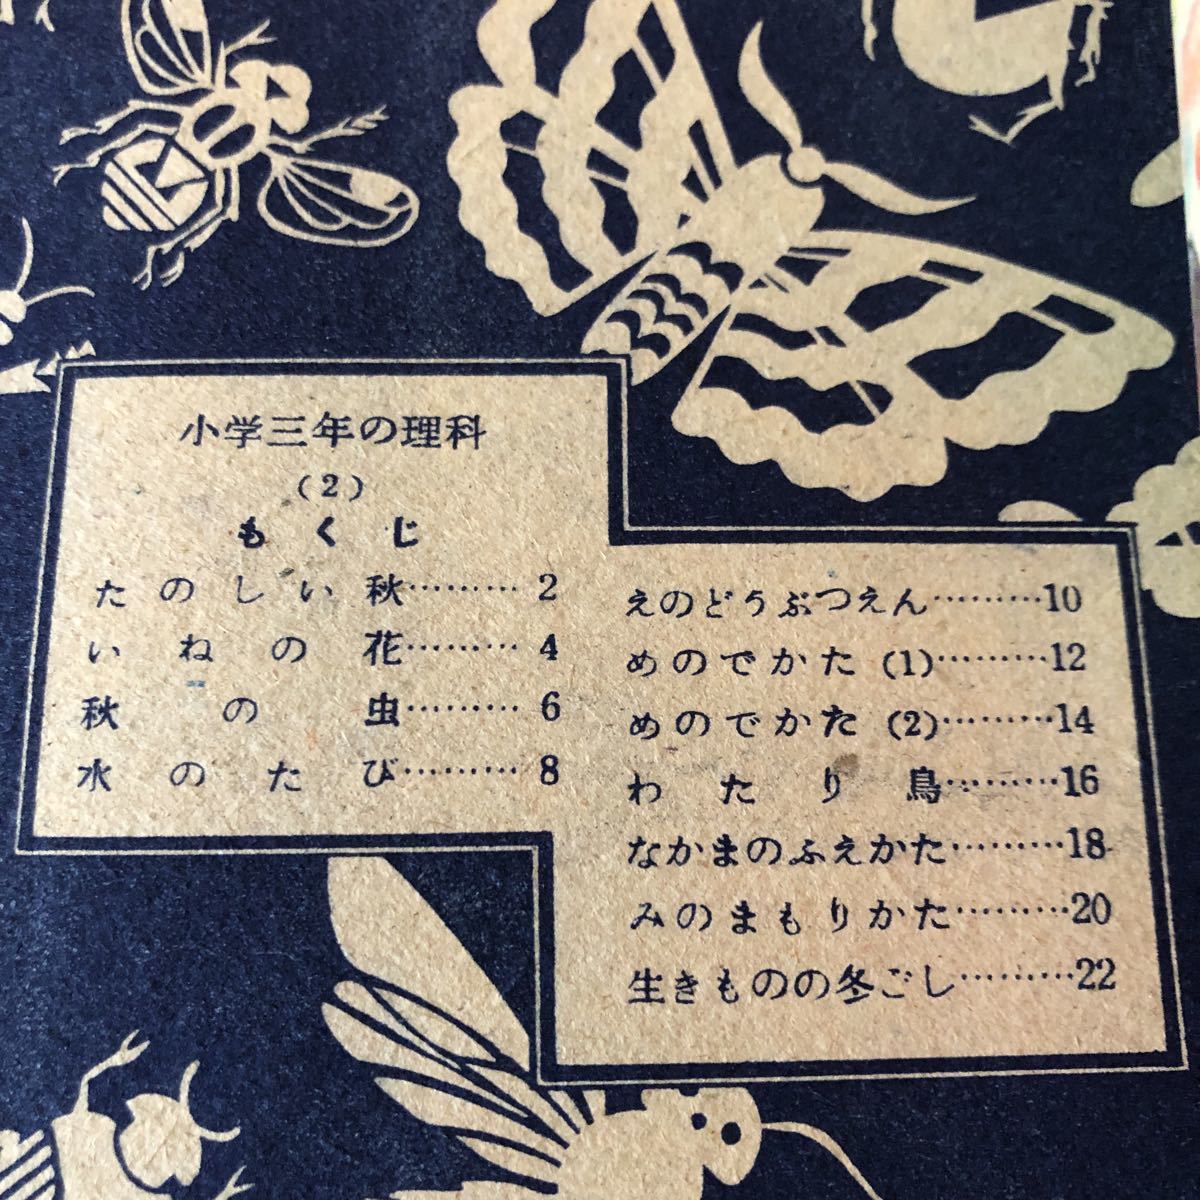 小学三年の理科
(2)
もくじ
たのしい秋………2
いねの花………4
秋の虫………6
水のたび………8
えのどうぶつえん………10
めのでかた(1)………12
めのでかた(2)………14
わたり鳥………16
なかまのふえかた………18
みのまもりかた………20
生きものの冬ごし………22